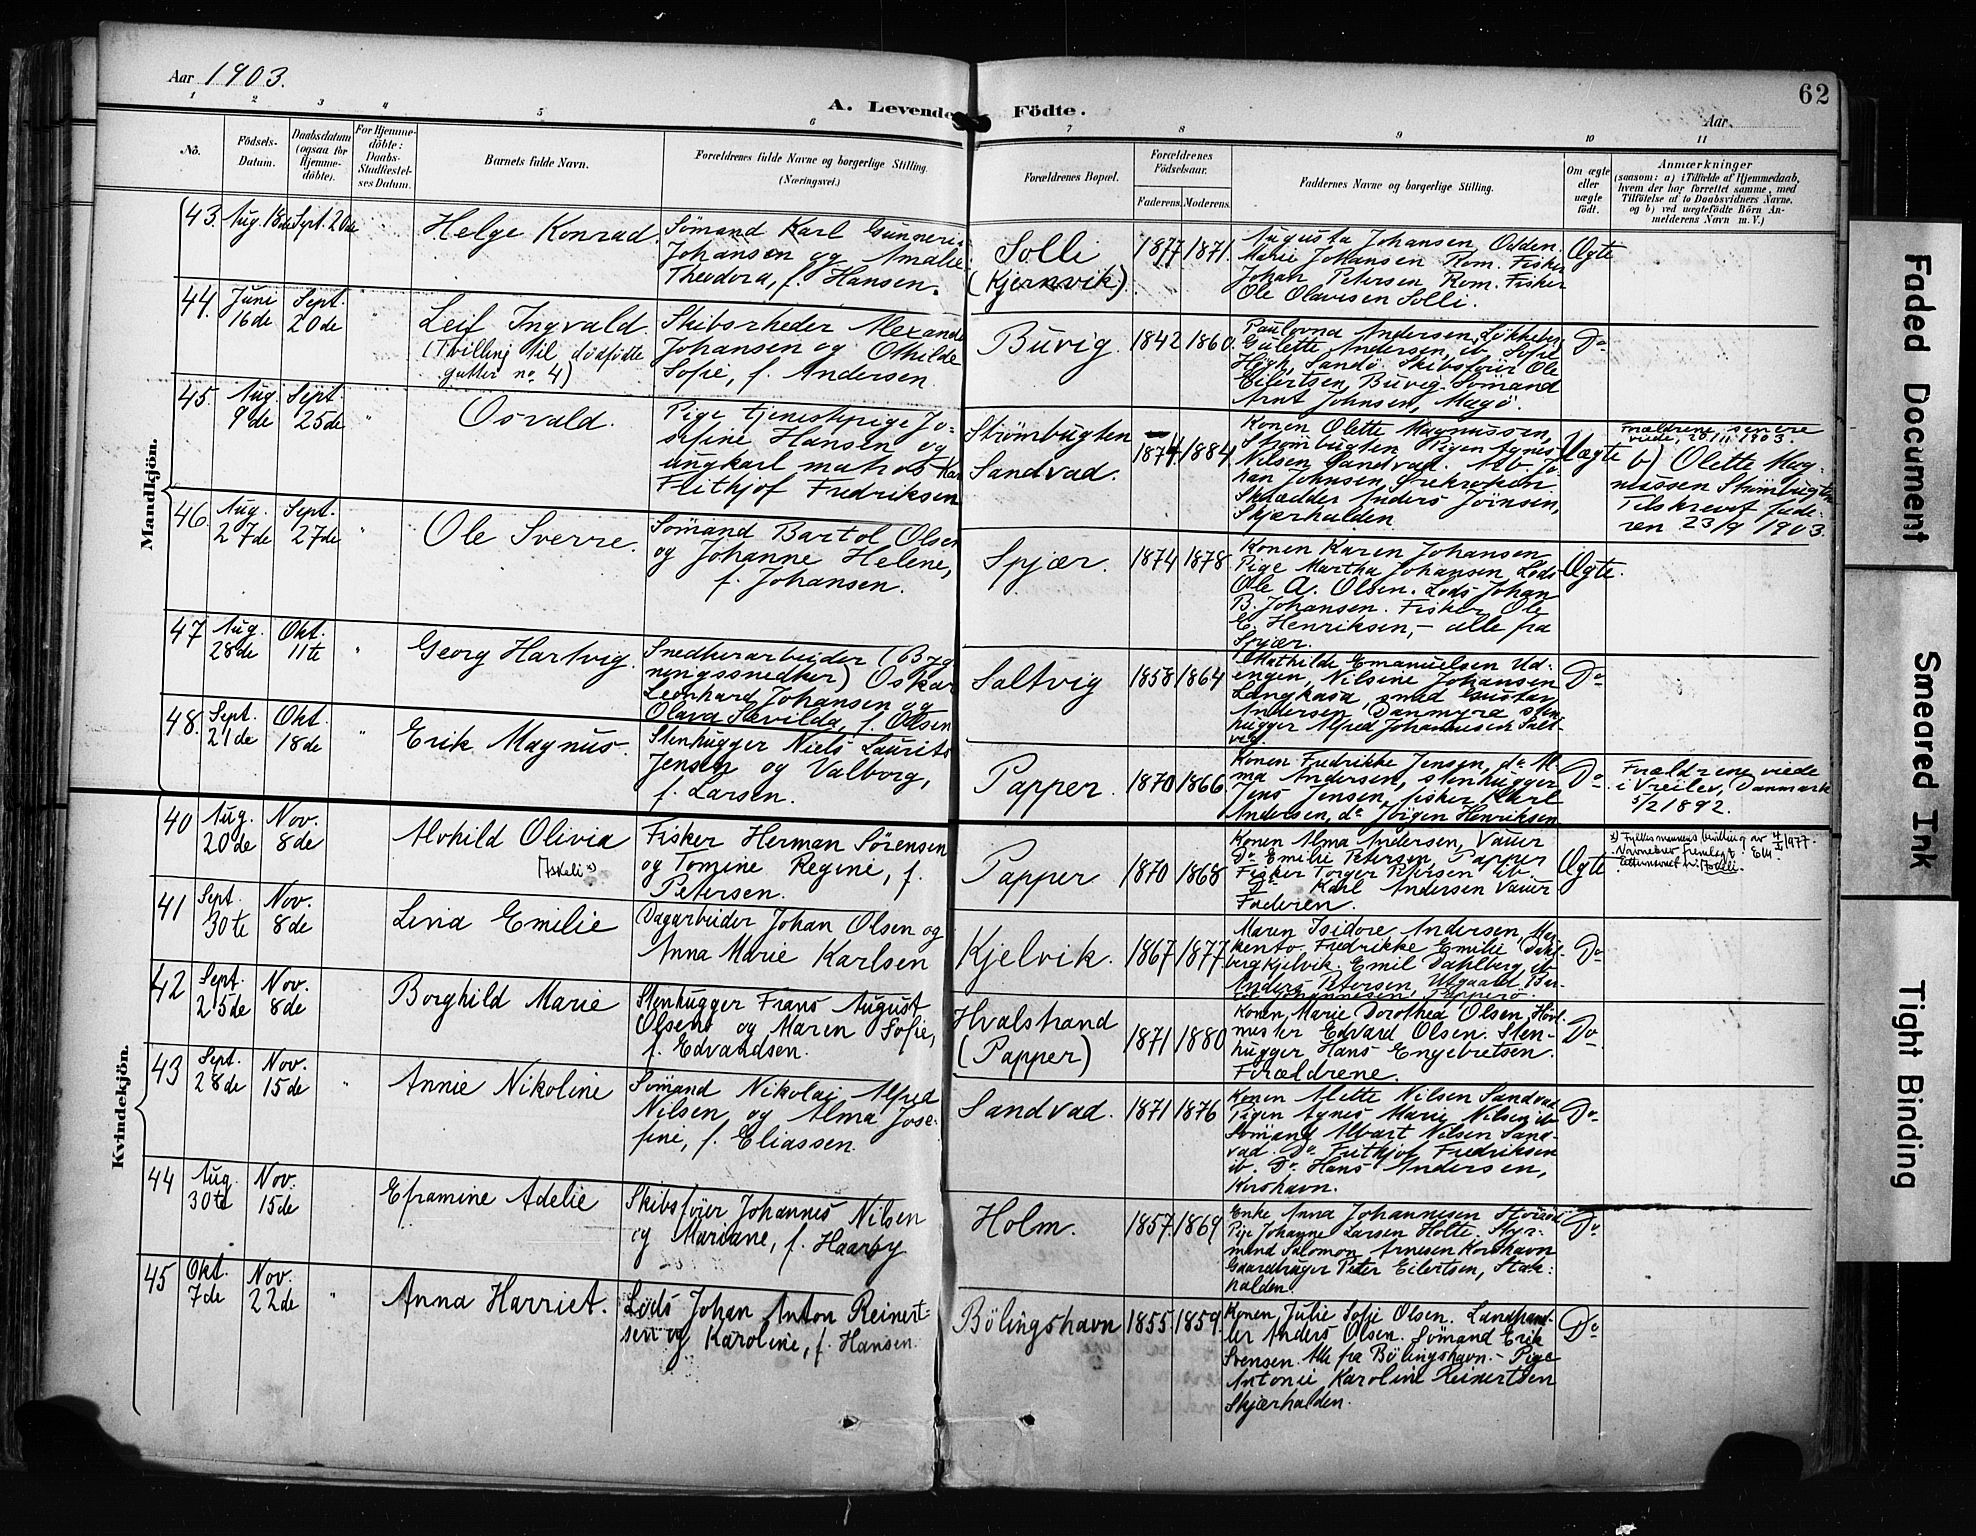 Aar 1903.
A. Levende Födte.
62
Aar
1 2 3 4 5 6 7 8 9 10 11
No.
Födsels-Datum.
Daabsdatum (ogsaa for Hjemme-döbte).
For Hjemme-döbte: Daabs-Stadfæstel-ses Datum.
Barnets fulde Navn.
Forældrenes fulde Navne og borgerlige Stilling (Næringsvei.)
Forældrenes Bopæl.
Forældrenes Födselsaar.
Faderens. Moderens.
Faddernes Navne og borgerlige Stilling.
Om ægte eller uægte födt.
Anmærkninger
(saasom: a) i Tilfælde af Hjemmedaab,
hvem der har forrettet samme, med
Tilföielse af to Daabsvidners Navne,
og b) ved uægtefödte Börn An-
melderens Navn m. V.)
Mandkjön.
43. Aug. 18de Sept. 20de
Helge Konrad.
Sömand Karl Gunneri-
Johansen og Amalie
Theodora, f. Hansen.
Solli
(Kjernvik)
1877 1871.
Augusta Johansen Odden.
Marie Johansen Rom. Fisker
Johan Petersen Rom. Fisker
Ole Olavesen Solli.
Ægte
44. Juni 16de Sept. 20de "
Leif Ingvald.
(Tvilling til dödfödte
gutter no. 4)
Skibsrheder Alexand
Johansen og Othilde
Sofie, f. Andersen
Buvig.
1842 1860.
Paulovna Andersen, Lökkeberg
Gulette Andersen, ib. Sofie
Högh, Sandö. Skibsförer Ole
Eilertsen, Buvig. Sömand
Arnt Johnsen, Magö.
Do
45. Aug. 9de Sept. 25de "
Osvald.
Pige tjenestepige Jo-
sefine Hansen og
ungkarl matros Karl
Frithjof Fredriksen
Strömbugten
Sandvad.
1874 1884.
Konen Olette Magnussen,
Strömbugten. Pigen Agnes
Nilsen Sandvad. Arb. Jo
han Johnsen,
Skrædder Anders Jörnsen,
Skjærhalden.
Uægte
Forældrene senere
viede, 20/11 1903.
b) Olette Mag-
nussen Strömbugten
Tilskrevet fade-
ren 23/9 1903.
46. Aug. 27de Sept. 27de "
Ole Sverre.
Sömand Bartol Olsen
og Johanne Helene,
f. Johansen.
Spjær.
1874 1878.
Konen Karen Johansen
Pige Martha Johansen Lods
Ole A. Olsen. Lods Johan
B. Johansen. Fisker Ole
E. Henriksen, - alle fra
Spjær.
Ægte.
47 Aug. 28de Okt. 11te "
Georg Hartvig.
Snedkerarbeider (Byg-
ningssnedker) Oskar
Leonhard Johansen og
Olava Sevilda, f. Olsen
Saltvig
1858 1864
Mathilde Emanuelsen Ud-
engen, Nilsine Johansen
Langkasa, smed Gustav
Andersen, Danmyre sten
hugger Alfred Johannesen Salt-
vig.
Do
48. Sept. 21de Okt. 18de "
Erik Magnus.
Stenhugger Niels Laurits
Jensen og Valborg,
f. Larsen.
Papper.
1870 1866.
Konen Fredrikke Jensen, do Al-
ma Andersen, stenhugger
Jens Jensen, fisker Karl
Andersen, do Jörgen Henriksen
Do
Forældrene viede
i Vreilev, Danmark
3/2 1892.
Kvindekjön.
40 Aug. 20de Nov. 8de
Alvhild Olivia
Askeli x)
Fisker Herman Sörensen
og Tomine Regine, f.
Petersen.
Papper
1870 1868
Konen Alma Andersen, Vauer
Do Emilie Petersen, Papper
Fisker Torger Petersen ib.
Do Karl Andersen Vauer
Faderen.
Ægte
x) Fylkesmannens bevilling av 4/ 1977.
Navnebrev fremlagt
Etternavnet Askeli.
41 Sept. 30te Nov. 8de
Lina Emilie
Dagarbeider Johan Olsen og
Anna Marie Karlsen
Kjelvik.
1867 1877.
Maren Isidore Andersen,
Fredrikke Emilie Dahl-
berg Kjelvik. Emil Dahlberg, ib.
Anders Petersen, Utgaard.
Johannesen Pappero.
Do
42 Sept. 25de Nov. 8de
Borghild Marie
Stenhugger Frans August
Olsen og Maren Sofie,
f. Edvardsen.
Hvalstrand
(Papper)
1871 1880
Konen Marie Dorothea Olsen, Havl
mester Edvard Olsen. Sten-
hugger Hans Engebretsen
Forældrene.
Do
43 Sept. 28de Nov. 15de "
Annie Nikoline
Sömand Nikolai Alfred
Nilsen og Alma Jose-
fine, f. Eliassen.
Sandvad.
1871 1876
Konen Alette Nilsen Sandvad
Pigen Agnes Marie Nilsen ib.
Sömand Albart Nilsen Sand-
vad. Do. Frithjof Fredriksen
ib. Do. Hans Andersen,
Korshavn.
Do
44 Aug. 30te Nov. 15de
Eframine Adelie
Skibsförer Johannes Nilsen
og Mariane, f. Haarby
Holm.
1857. 1869
Enke Anna Johannesen
Pige Johanne Larsen Holte. Styr-
mand Salomon Arnesen Korshavn
Gaardbruger Peter Eilertsen, Stok-
halden.
Do
45 Okt. 7de Nov. 22de "
Anna Harriet.
Lods Johan Anton Reinert-
sen og Karoline, f. Hansen.
Bölingshavn
1855. 1859.
Konen Julie Sofie Olsen. Landhand-
ler Anders Olsen. Sömand Erik
Svensen. Alle fra Bölingshavn. - Pige
Antonie Karoline Reinertsen
Skjærhalden.
Do
Faded Document
Smeared Ink
Tight Binding